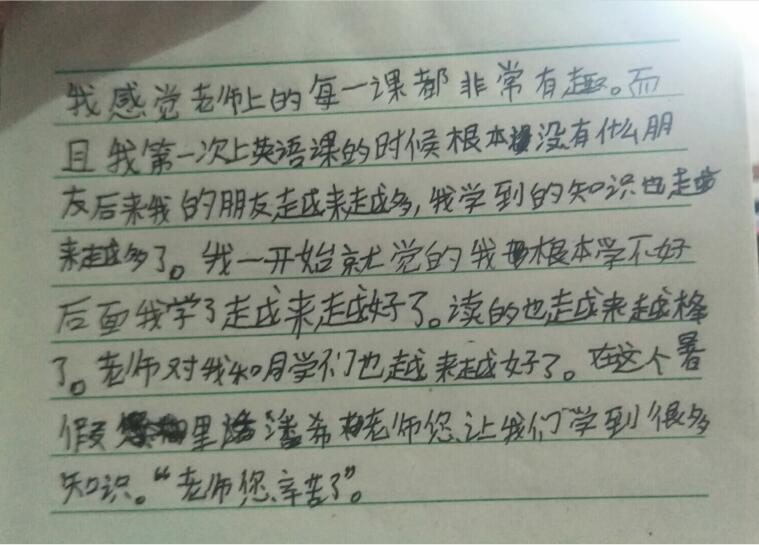 我感觉老师上的每一课都非常有趣。而
且我第一次上英语课的时候根本没有什么朋
友后来我的朋友越来越多,我学到的知识也越
来越多了。我一开始就觉的我根本学不好
后面我学了越来越好了。读的也越来越棒
了。老师对我和同学们也越来越好了。在这个暑
假里潘希老师您让我们学到很多
知识。“老师您辛苦了”。